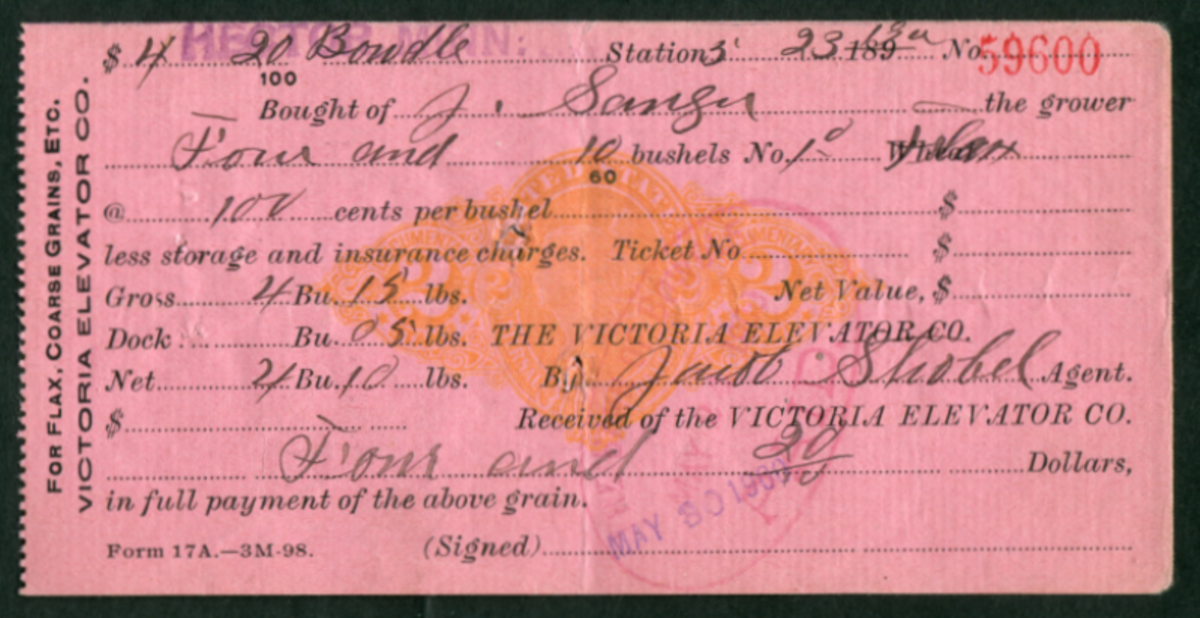 HECTOR, MINN.
$ 4 20/100 Bowdle Station 5 23 189 No. 59600
Bought of J. Sanger the grower
Four and 10/60 bushels No. 1 Wheat Flax
@ 100 cents per bushel $
less storage and insurance charges. Ticket No $
Gross 4 Bu. 15 lbs. Net Value, $
Dock Bu. 05 lbs. THE VICTORIA ELEVATOR CO.
Net 4 Bu. 10 lbs. By Jacob Strobel Agent.
$ Received of the VICTORIA ELEVATOR CO.
Four and 20/100 Dollars,
in full payment of the above grain.
MAY 30 1900
Form 17A.—3M-98. (Signed)
FOR FLAX, COARSE GRAINS, ETC.
VICTORIA ELEVATOR CO.